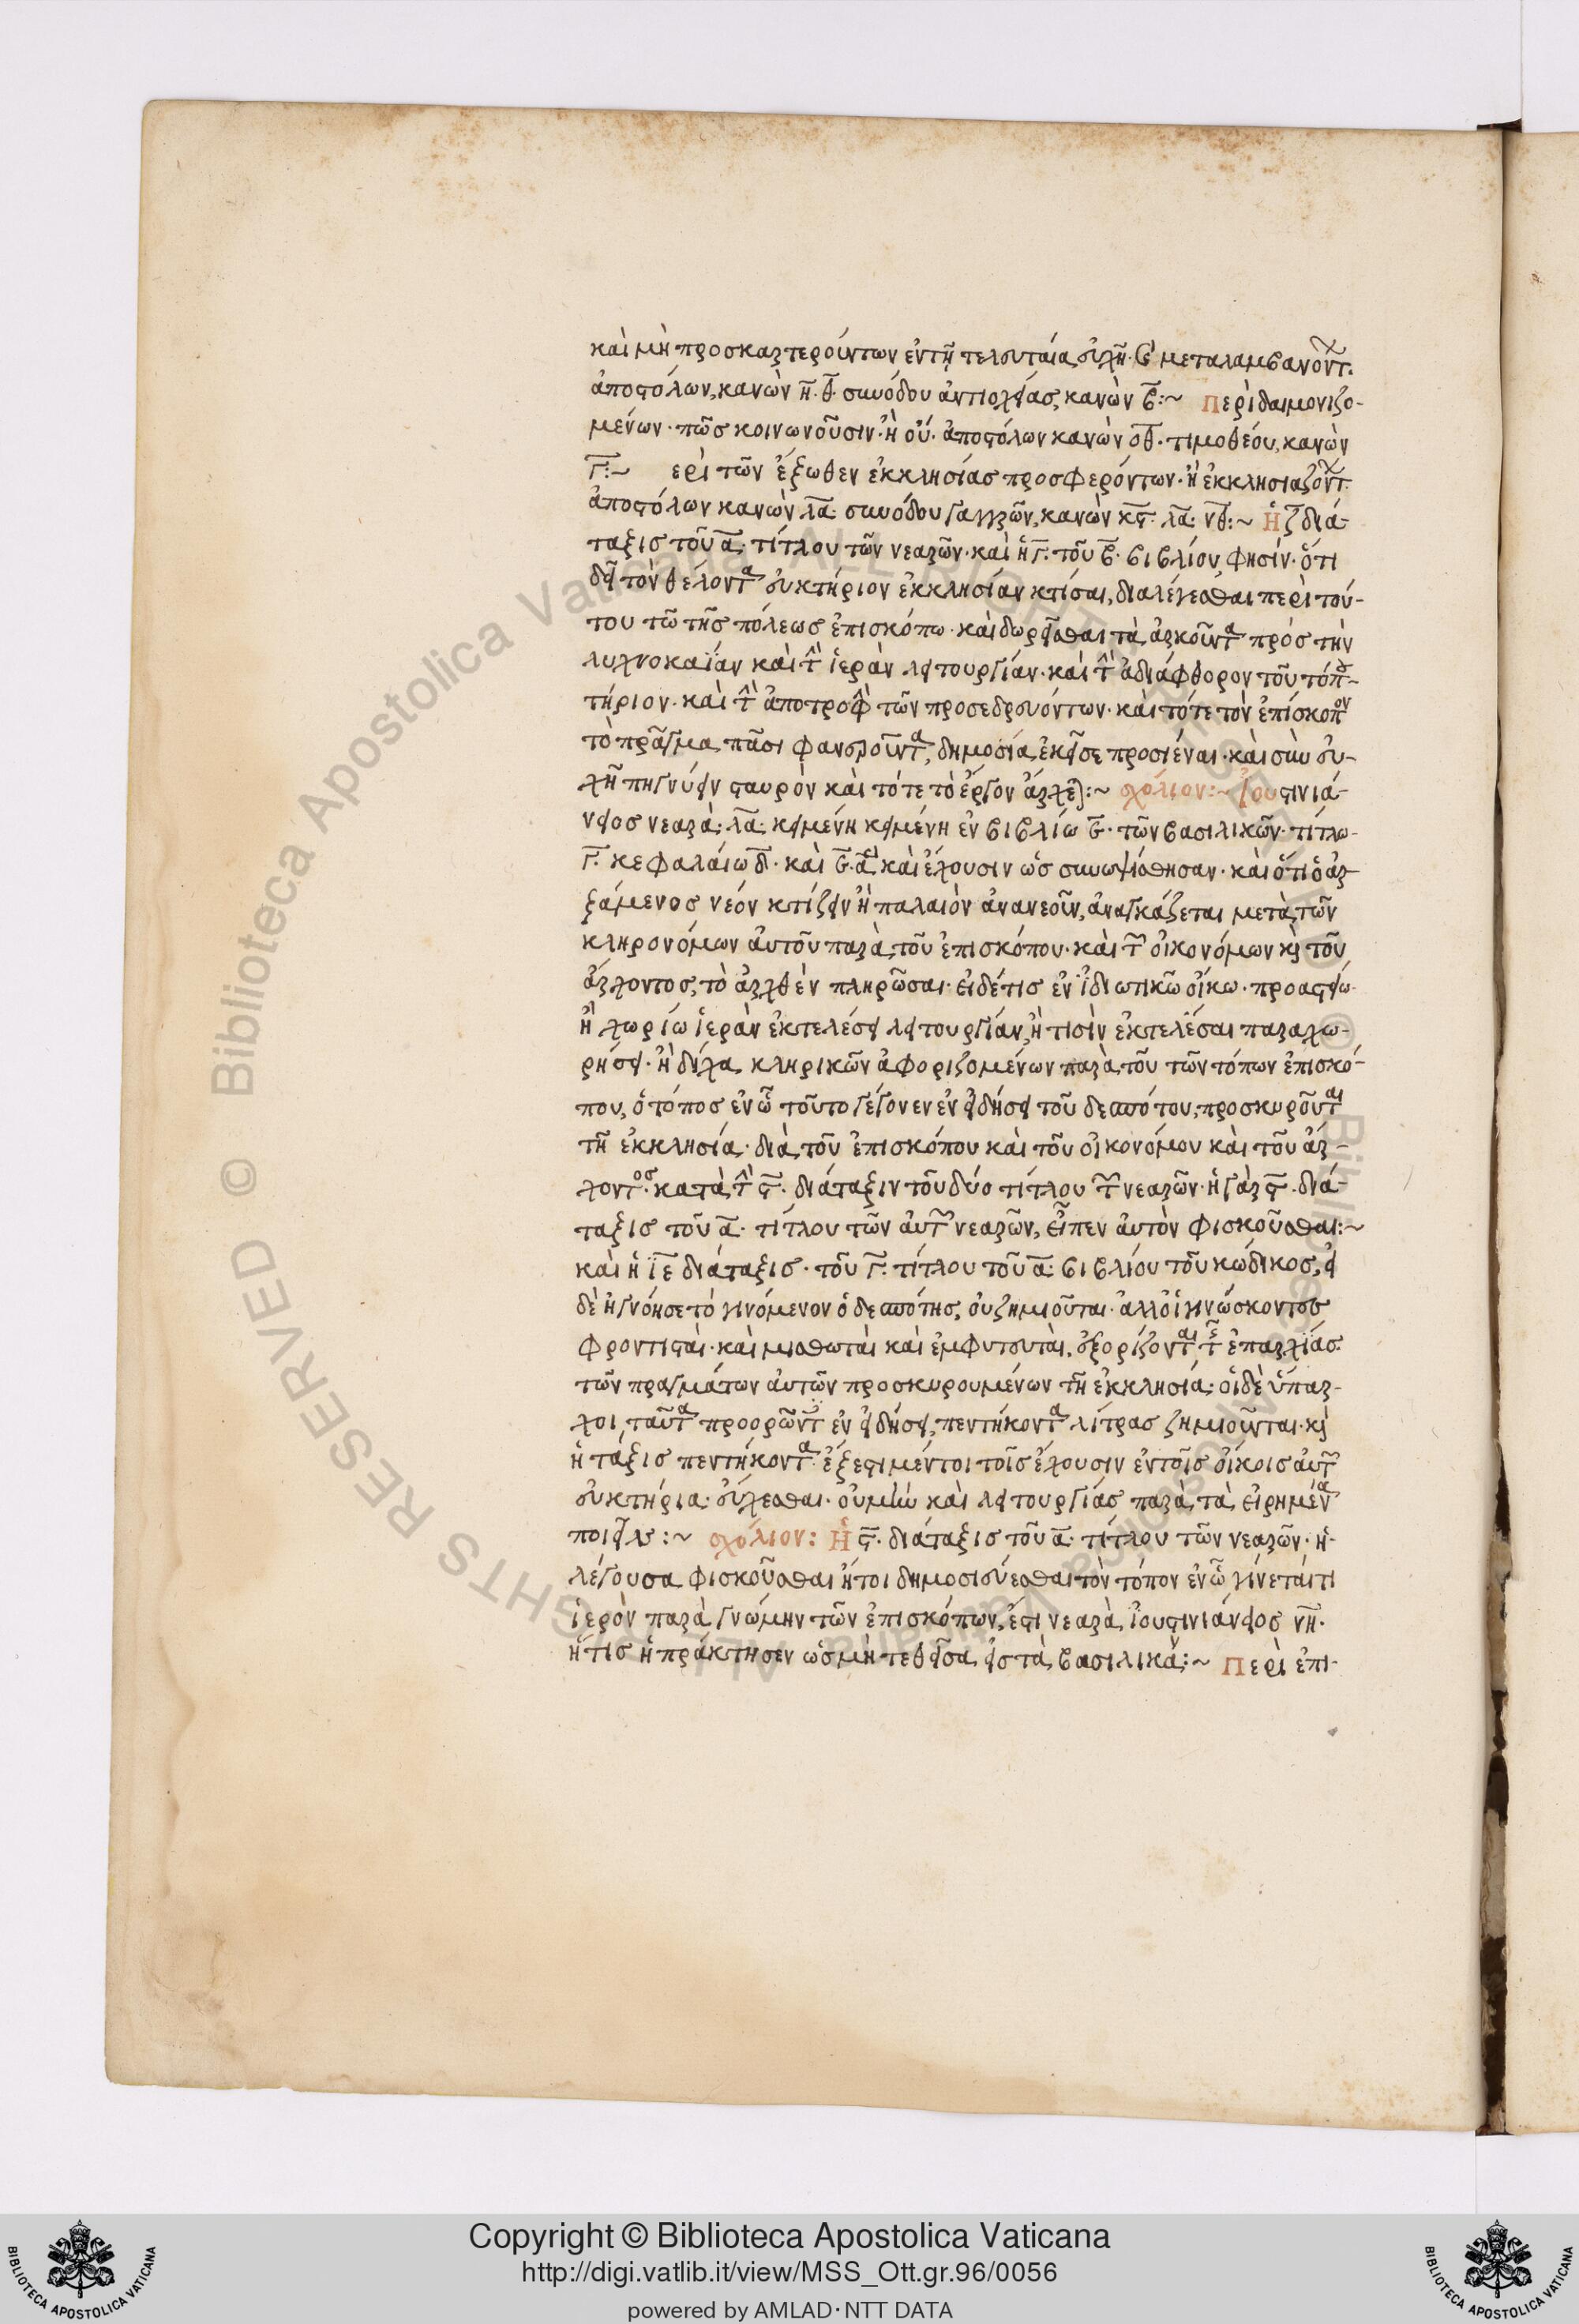 καὶ μὴ προσκαρτερούντων ἐν τῆ τελευταία εὐχῆ· καὶ μεταλαμβανόντ.
ἀποστόλων, κανὼν η̅. θ̅. συνόδου ἀντιοχείασ, κανὼν β̅:~ Περὶ δαιμονιζο-
μένων· πῶσ κοινωνοῦσιν· ἢ οὔ· ἀποστόλων κανὼν οθ̅. τιμοθέου, κανὼν
γ̅:~ ερὶ τῶν ἔξωθεν ἐκκλησίασ προσφερόντων· ἢ ἐκκλησιαζοντ.
ἀποστόλων κανὼν λα̅: συνόδου γαγγρῶν, κανὼν κϛ̅. λα̅: νθ̅:~ Ἡ ζ διά-
ταξισ τοῦ α̅. τίτλου τῶν νεαρῶν· καὶ ἡ γ̅. τοῦ β̅. βιβλίου, φησίν· ὅτι
δεῖ τὸν θέλοντα εὐκτήριον ἐκκλησίαν κτίσαι, διαλέγεσθαι περὶ τού-
του τῶ τῆσ πόλεωσ ἐπισκόπω· καὶ δωρεῖσθαι τὰ ἀρκοῦντα πρὸσ τὴν
λυχνοκαΐαν καὶ τὴν ἱερὰν λειτουργίαν· καὶ τὴν ἀδιάφθορον τοῦ τόπου
τήριον· καὶ τὴν ἀποτροφὴν τῶν προσεδρευόντων· καὶ τότε τὸν ἐπίσκοπον
τὸ πρᾶγμα πᾶσι φανεροῦντα, δημοσία ἐκεῖσε προσιέναι· καὶ σὺν εὐ-
χῆ πηγνύειν σταυρὸν καὶ τότε τὸ ἔργον ἄρχεσθαι:~ σχόλιον:~ Ἰουστινιά-
νειοσ νεαρὰ: λα̅: κειμένη κειμένη ἐν βιβλίω ϛ̅. τῶν βασιλικῶν· τίτλω-
γ̅. κεφαλαίω δ̅. καὶ ϛ̅. α̅ καὶ ἔχουσιν ὡσ συνωψίσθησαν· καὶ ὅτι ὁ ἀρ-
ξάμενοσ νέον κτίζειν ἢ παλαιὸν ἀνανεοῦν, ἀναγκάζεται μετὰ τῶν
κληρονόμων αὐτοῦ παρὰ τοῦ ἐπισκόπου· καὶ τῶν οἰκονόμων καὶ τοῦ
ἄρχοντοσ, τὸ ἀρχθὲν πληρῶσαι· εἰ δέ τισ ἐν ἰδιωτικῶ οἴκω· προαστείω-
ἢ χωρίω ἱερὰν ἐκτελέσει λειτουργίαν, ἢ τισὶν ἐκτελέσαι παραχω-
ρήσει· ἢ δίχα κληρικῶν ἀφοριζομένων παρὰ τοῦ τῶν τόπων ἐπισκό-
που, ὁ τόποσ ἐν ὧ τοῦτο γέγονεν ἐν εἰδήσει τοῦ δεσπότου, προσκυροῦται
τῆ ἐκκλησία· διὰ τοῦ ἐπισκόπου καὶ τοῦ οἰκονόμου καὶ τοῦ ἄρ-
χοντοσ· κατὰ τὴν ϛ̅. διάταξιν τοῦ δύο τίτλου τῶν νεαρῶν· ἡ γὰρ ϛ̅. διά-
ταξισ τοῦ α̅. τίτλου τῶν αὐτῶν νεαρῶν, εἶπεν αὐτὸν φισκοῦσθαι:~
καὶ ἡ ιε̅ διάταξισ· τοῦ γ̅. τίτλου τοῦ α̅: βιβλίου τοῦ κώδικοσ, εἰ
δὲ ἠγνόησε τὸ γινόμενον ὁ δεσπότησ, οὐ ζημιοῦται· ἀλλ' οἱ γινώσκοντεσ
φροντισταὶ· καὶ μισθωταὶ καὶ ἐμφυτευταὶ, ἐξορίζονται τῆσ ἐπαρχίασ·
τῶν πραγμάτων αὐτῶν προσκυρουμένων τῆ ἐκκλησία: οἱ δὲ ὕπαρ-
χοι, ταῦτα προορῶντεσ ἐν εἰδήσει, πεντήκοντα λίτρασ ζημιοῦνται· καὶ
ἡ τάξισ πεντήκοντα· ἔξεστι μέντοι τοῖσ ἔχουσιν ἐν τοῖσ οἴκοισ αὐτῶν
εὐκτήρια: εὔχεσθαι· οὐ μὴν καὶ λειτουργίασ παρὰ τὰ εἰρημένα
ποιεῖν:~ σχόλιον: Ἡ ϛ̅. διάταξισ τοῦ α̅. τίτλου τῶν νεαρῶν· ἡ-
λέγουσα φισκοῦσθαι ἤτοι δημοσιεύεσθαι τὸν τόπον ἐν ὧ γίνεταί τι
ἱερὸν παρὰ γνώμην τῶν ἐπισκόπων, ἔστι νεαρὰ ἰουστινιάνειοσ νη̅.
ἥτισ ἠπράκτησεν ὡσ μὴ τεθεῖσα εἰσ τὰ βασιλικά:~ Περὶ ἐπι-
Copyright © Biblioteca Apostolica Vaticana
http://digi.vatlib.it/view/MSS_Ott.gr.96/0056
powered by AMLAD·NTT DATA
BIBLIOTECA APOSTOLICA VATICANA
BIBLIOTECA APOSTOLICA VATICANA